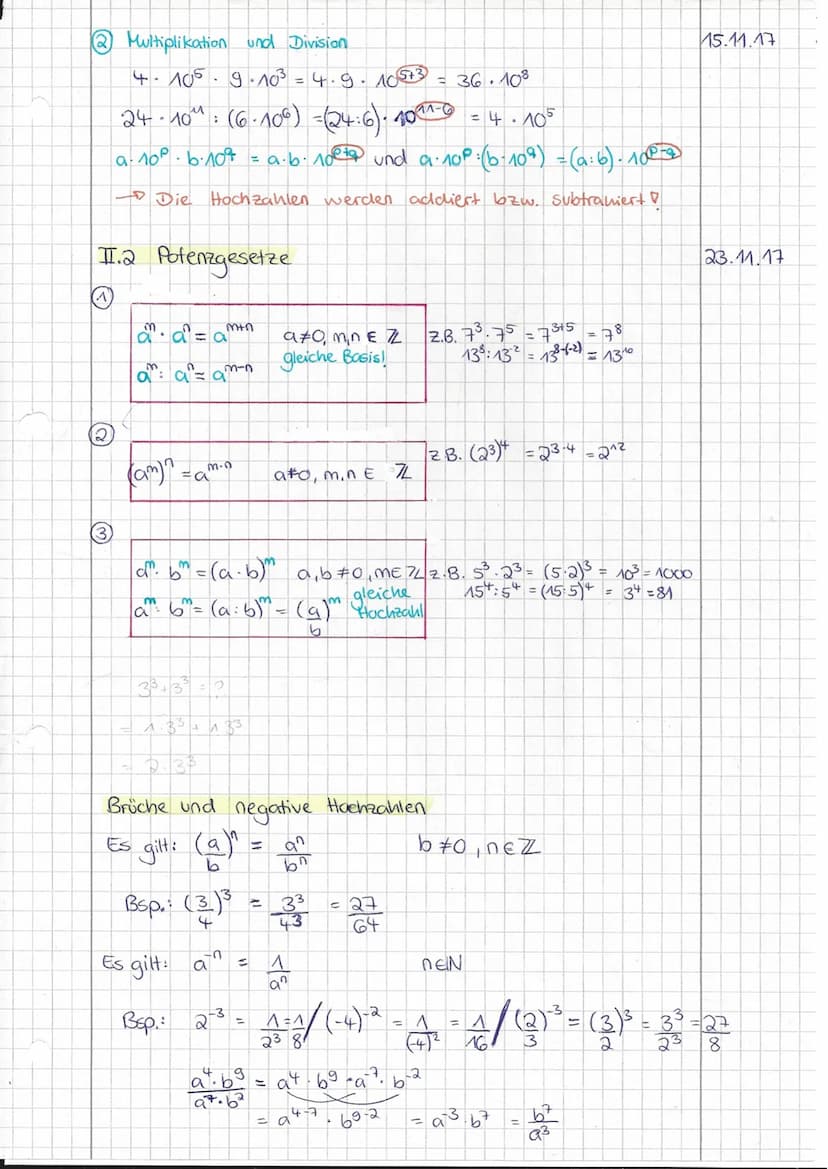 ② Multiplikation und Division 15.11.17
4 · 10⁵ · 9 · 10³ = 4 · 9 · 10⁵⁺³ = 36 · 10⁸
24 · 10¹¹ : (6 · 10⁶) = (24:6) · 10¹¹⁻⁶ = 4 · 10⁵
a · 10^p · b · 10^q = a · b · 10^(p+q) und a · 10^p : (b · 10^q) = (a:b) · 10^(p-q)
→ Die Hochzahlen werden addiert bzw. subtrahiert!
II.2 Potenzgesetze 23.11.17
①
a^m · a^n = a^(m+n) a≠0, m,n ∈ ℤ z.B. 7³ · 7⁵ = 7³⁺⁵ = 7⁸
gleiche Basis! 13⁸ : 13⁻² = 13^(8-(-2)) = 13¹⁰
a^m : a^n = a^(m-n)
②
(a^m)^n = a^(m·n) a≠0, m,n ∈ ℤ z.B. (2³)⁴ = 2^(3·4) = 2¹²
③
a^m · b^m = (a · b)^m a,b ≠ 0, m ∈ ℤ z.B. 5³ · 2³ = (5·2)³ = 10³ = 1000
a^m : b^m = (a : b)^m = (a/b)^m gleiche Hochzahl 15⁴ : 5⁴ = (15:5)⁴ = 3⁴ = 81
3³ + 3³ = ?
= 1 · 3³ + 1 · 3³
= 2 · 3³
Brüche und negative Hochzahlen
Es gilt: (a/b)^n = a^n/b^n b ≠ 0, n ∈ ℤ
Bsp.: (3/4)³ = 3³/4³ = 27/64
Es gilt: a^(-n) = 1/a^n n ∈ ℕ
Bsp.: 2⁻³ = 1/2³ = 1/8 / (-4)⁻² = 1/(-4)² = 1/16 / (2/3)⁻³ = (3/2)³ = 3³/2³ = 27/8
a⁴·b⁹/a⁷·b² = a⁴ · b⁹ · a⁻⁷ · b⁻²
= a⁴⁻⁷ · b⁹⁻² = a⁻³ · b⁷ = b⁷/a³